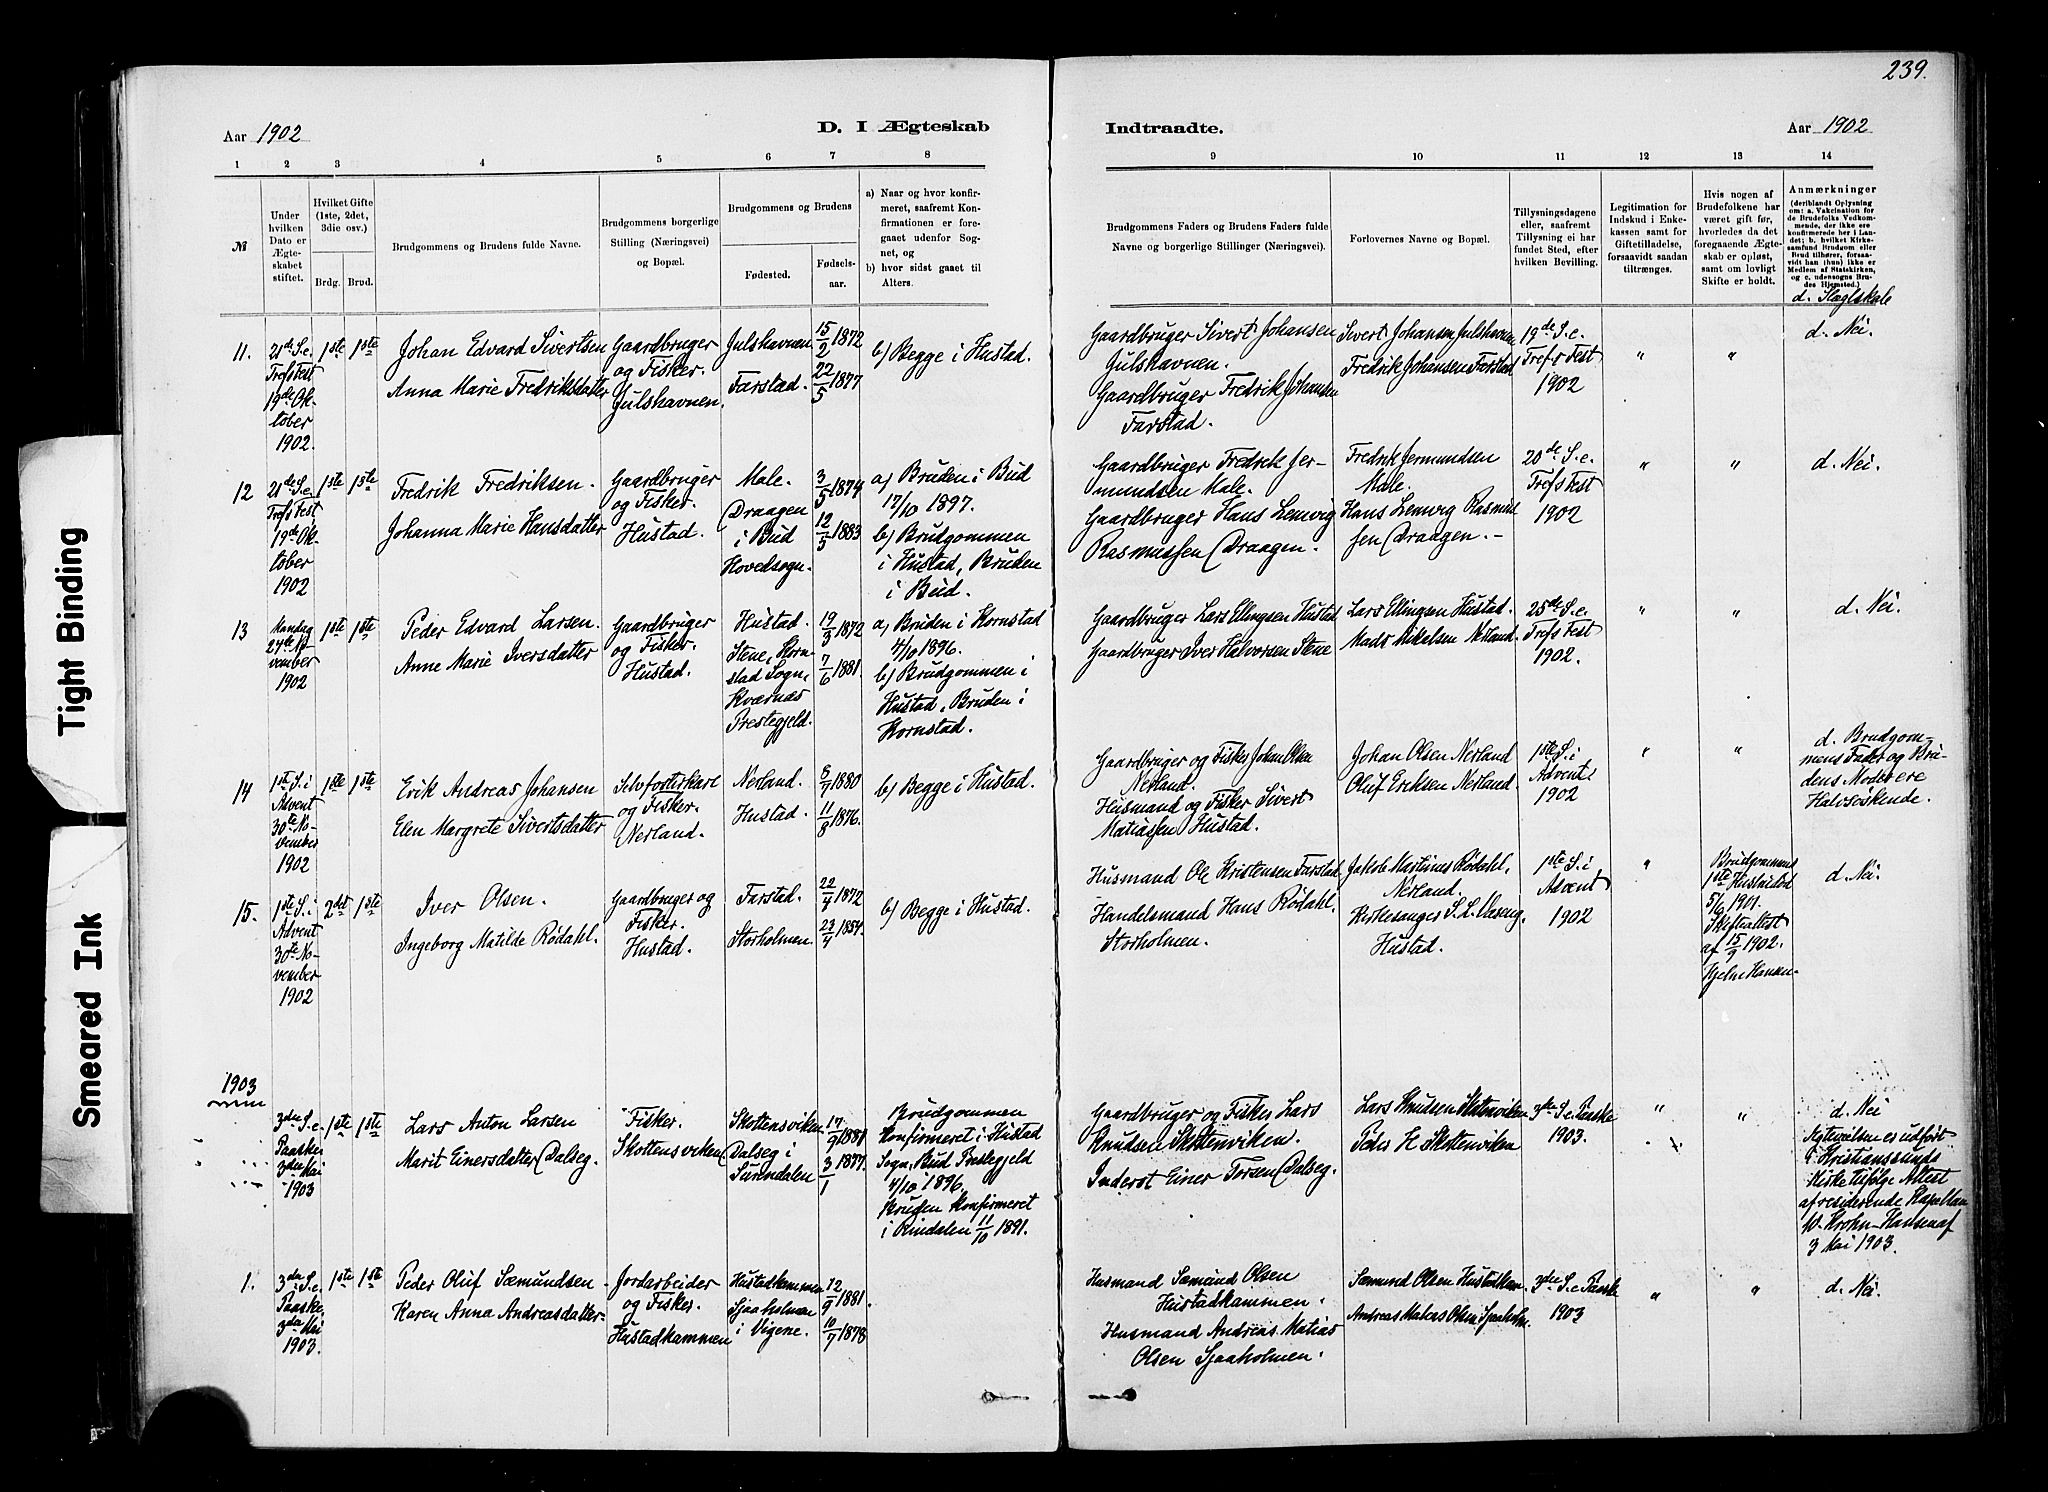 239.
Aar 1902
D. I Ægteskab
Indtraadte.
Aar 1902
1 2 3 4 5 6 7 8
9 10 11 12 13 14
№
Under hvilken Dato er Ægteskabet stiftet.
Hvilket Gifte (1ste, 2det, 3die osv.)
Brdg. Brud.
Brudgommens og Brudens fulde Navne.
Brudgommens borgerlige Stilling (Næringsvei) og Bopæl.
Brudgommens og Brudens
Fødested.
Fødsels-aar.
a) Naar og hvor konfirmeret, saafremt Konfirmationen er foregaaet udenfor Sognet, og
b) hvor sidst gaaet til Alters.
Brudgommens Faders og Brudens Faders fulde Navne og borgerlige Stillinger (Næringsvei).
Forlovernes Navne og Bopæl.
Tillysningsdagene eller, saafremt Tillysning ei har fundet Sted, efter hvilken Bevilling.
Legitimation for Indskud i Enkekassen samt for Giftetilladelse, forsaavidt saadan tiltrænges.
Hvis nogen af Brudefolkene har været gift før, hvorledes da det foregaaende Ægteskab er opløst, samt om lovligt Skifte er holdt.
Anmærkninger
(deriblandt Oplysning om: a. Vakcination for de Brudefolks Vedkommende, der ikke ere konfirmerede her i Landet; b. hvilket Kirkesamfund Brudgom eller Brud tilhører, forsaavidt han (hun) ikke er Medlem af Statskirken, og c. udensogns Brudes Hjemsted.)
11.
21de S. e. Trefs Fest
19de Oktober
1902.
1ste 1ste
Johan Edvard Sivertsen
Anna Marie Fredriksdatter
Gaardbruger
og Fisker.
Julshavnen.
Julshavnen 15/2 1872
Farstad. 22/5 1877
b) Begge i Hustad.
Gaardbruger Sivert Johansen
Julshavnen.
Gaardbruger Fredrik Johansen
Farstad.
Sivert Johansen Julshavnen
Fredrik Johansen Farstad
19de S. e.
Trefs Fest
1902
" "
d. Nei.
12
21de S. e. Trefs Fest
19de Oktober
1902
1ste 1ste
Fredrik Fredriksen.
Johanna Marie Hansdatter
Gaardbruger
og Fisker.
Hustad.
Male. 3/5 1874
Draagen
i Bud
Hovedsogn.
12/5 1883
a) Bruden i Bud
17/10 1897.
b) Brudgommen
i Hustad, Bruden
i Bud.
Gaardbruger Fredrik Jer-
mundsen Male.
Gaardbruger Hans Lemvig
Rasmussen Draagen.
Fredrik Jermundsen
Male.
Hans Lemvig Rasmus
sen Draagen. -
20de S. e.
Trefs Fest
1902
" "
d. Nei.
13
Mandag
24de No-
vember
1902
1ste 1ste
Peder Edvard Larsen.
Anne Marie Iversdatter
Gaardbruger
og Fisker.
Hustad.
Hustad. 19/3 1872
Stene, Korn-
stad Sogn,
Kværnæs
Prestegjeld.
7/6 1881.
a) Bruden i Kornstad
4/10 1896.
b) Brudgommen i
Hustad, Bruden i
Kornstad.
Gaardbruger Lars Ellingsen Hustad
Gaardbruger Iver Halvorsen Stene
Lars Ellingsen Hustad.
Mads Mikalsen Nerland.
25de S. e.
Trefs Fest
1902.
" "
d. Nei.
14
1st S. i
Advent
30te No-
vember
1902
1ste 1ste
Erik Andreas Johansen
Elen Margrete Sivertsdatter
Selvforstærkare
og Fisker.
Nerland.
Nerland. 8/7 1880
Hustad. 11/8 1876.
b) Begge i Hustad.
Gaardbruger og Fisker Johan Olsen
Nerland.
Husmand og Fisker Sivert
Matiassen Hustad.
Johan Olsen Nerland
Oluf Eriksen Nerland.
1ste S. i
Advent
1902
" "
d. Brudgom-
mens Fader og Bru-
dens Moder ere
Halvsøskende.
15.
1ste S. i
Advent
30te No-
vember
1902
2det 1ste
Iver Olsen.
Ingeborg Matilde Rødahl.
Gaardbruger og
Fisker.
Hustad.
Farstad. 22/4 1872
Storholmen. 23/4 1884.
b) Begge i Hustad.
Husmand Ole Kristensen Farstad
Handelsmand Hans Rødahl.
Storholmen.
Jakob Martinus Rødahl.
Nerland.
Kirkesanger S. L. Vaseng,
Hustad.
1ste S. i
Advent
1902
"
Brudgommens
1ste Hustru død
5/6 1901.
Skifteattest
af 15/9 1902.
d. Nei.
1903
3dre S. e.
Paaske
3die Mai
1903
1ste 1ste
Lars Anton Larsen
Marit Einersdatter Dalseg.
Fisker.
Skottensviken
Skottensviken 17/9 1881
Dalseg i
Surendalen
3/1 1877.
Brudgommen
Konfirmeret i Hustad
Sogn, Bud Prestegjeld
4/10 1896.
Bruden Konfirmeret
i Rindalen 11/10 1891.
Gaardbruger og Fisker Lars
Knudsen Skottenviken.
Inderst Einer Torsen Dalseg.
Lars Knudsen Skottenviken
Peder H Skottenviken
3die S. e. Paaske
1903.
" "
d. Nei
Ægtevielsen er udført
i Kristianssunds
Kirke tilfølge Attest
af residerende Kapellan
W. Krohn-Hansen af
3 Mai 1903.
1.
3die S. e.
Paaske,
3die Mai
1903.
1ste 1ste
Peder Oluf Sæmundsen
Karen Anna Andreasdatter
Jordarbeider
og Fisker.
Hustadkammen
Hustadkammen 12/9 1881.
Sjaaholmen
i Vigene.
10/7 1878
Husmand Sæmund Olsen
Hustadkammen.
Husmand Andreas Matias
Olsen Sjaaholmen.
Sæmund Olsen Hustadkam.
Andreas Matias Olsen Sjaaholm.
3die S. e Paaske
1903
" "
d. Nei.
Tight Binding
Smeared Ink